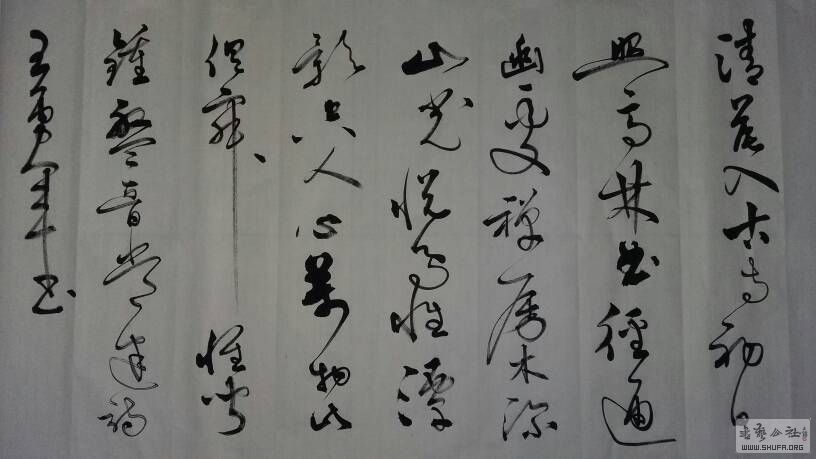 清晨入古寺初日
照高林曲徑通
幽處禅房木深
山光悦鸟性潭
影空人心萬物此
俱寂惟闻
鍾磬音常建詩
王勇军书
书艺公社
WWW.SHUFA.ORG